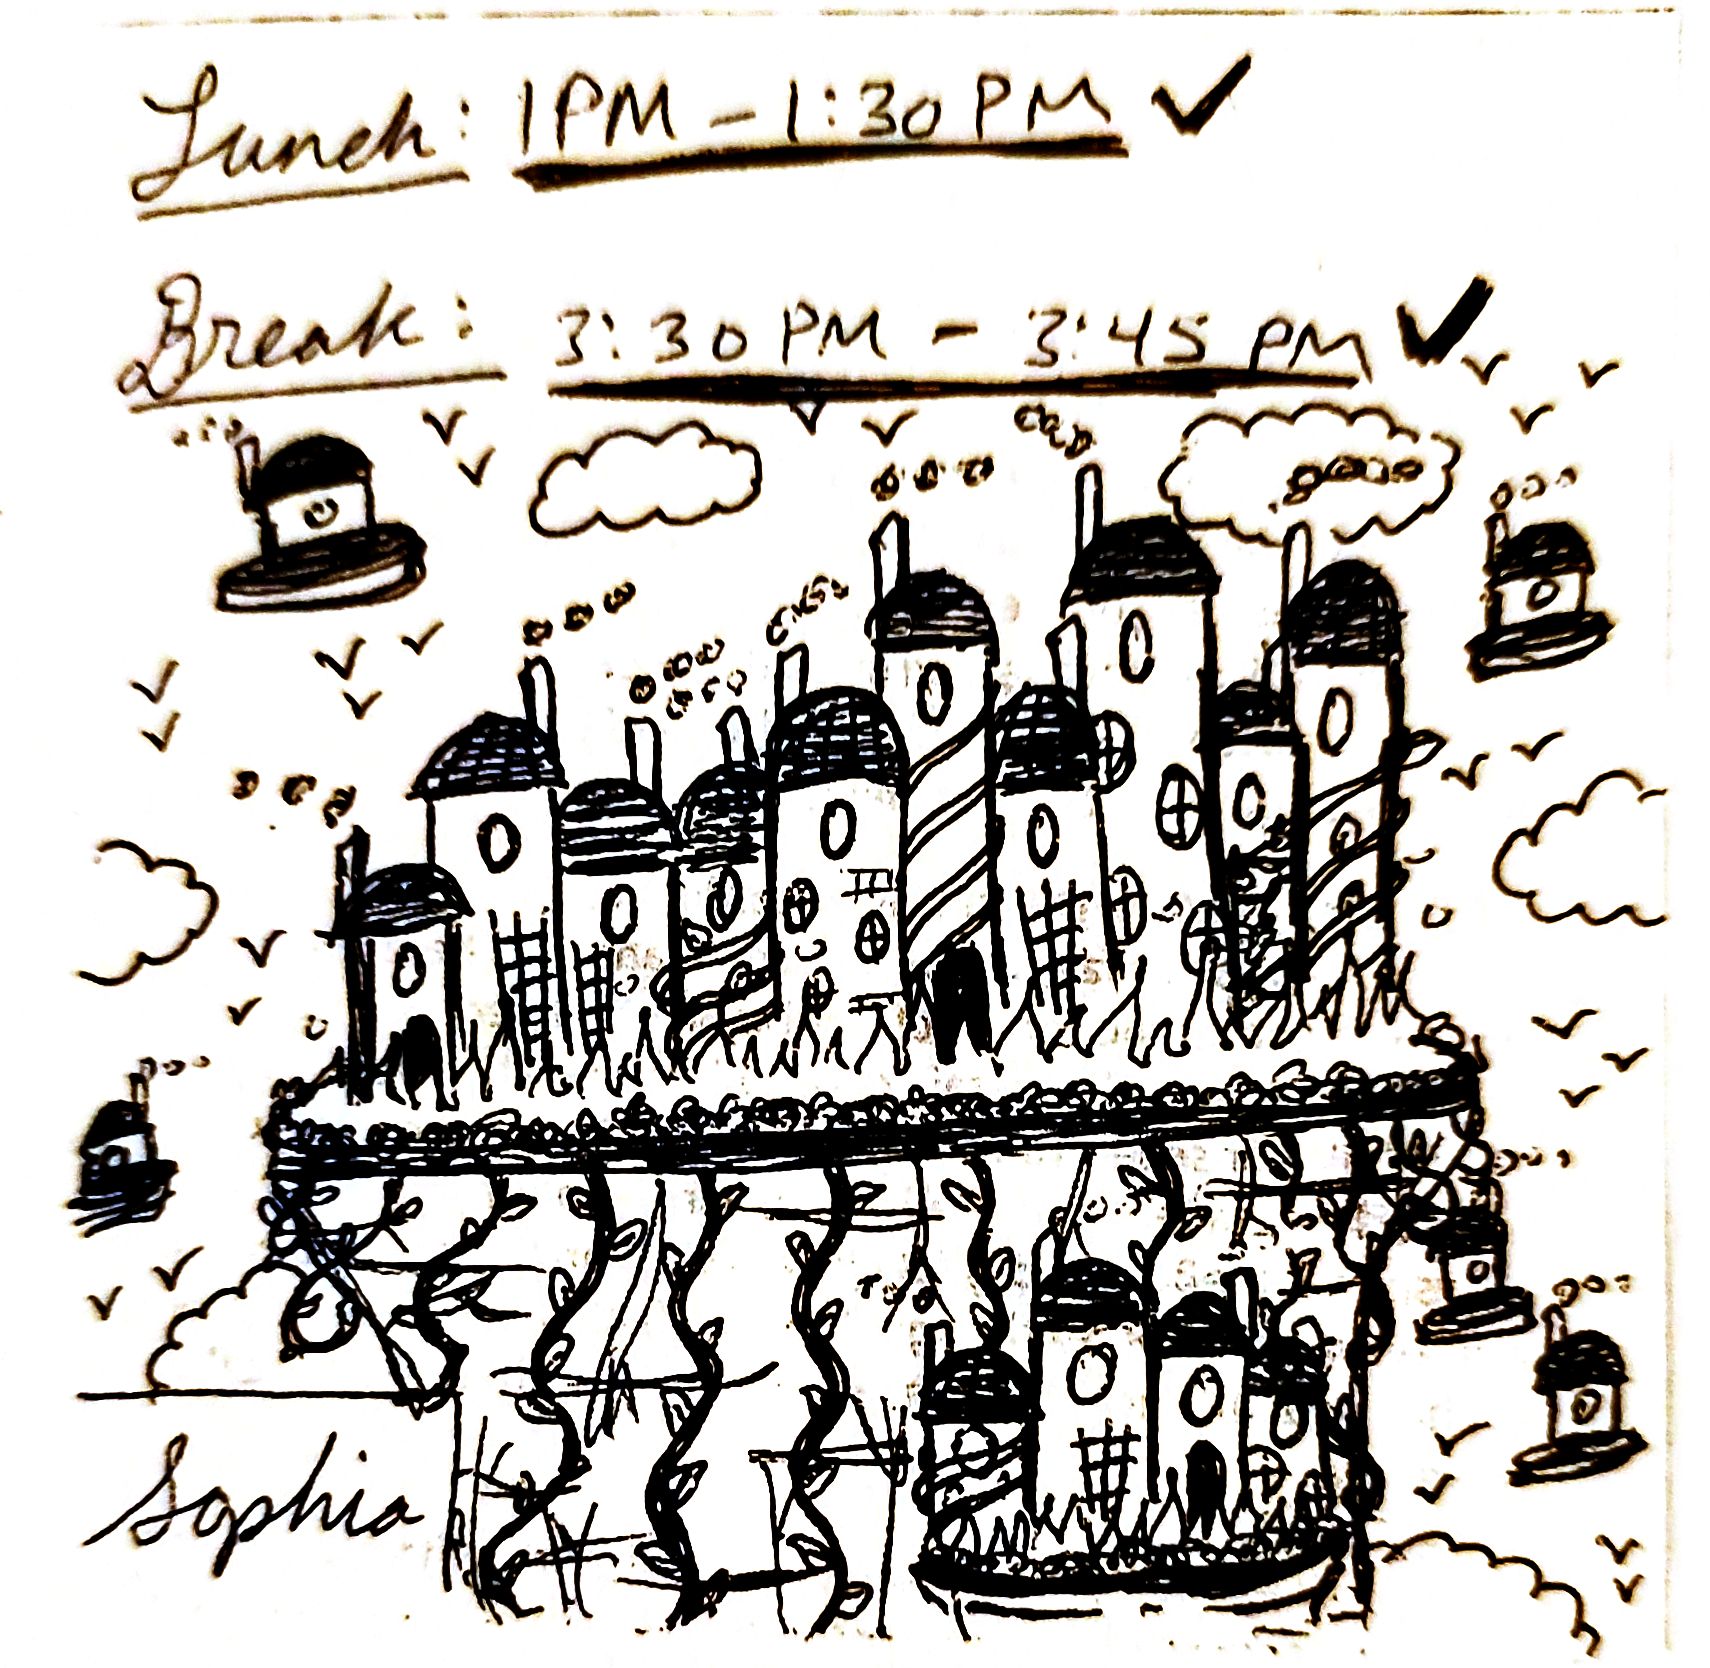 Lunch: 1PM - 1:30PM ✓
Break: 3:30 PM - 3:45 PM ✓
Sophia